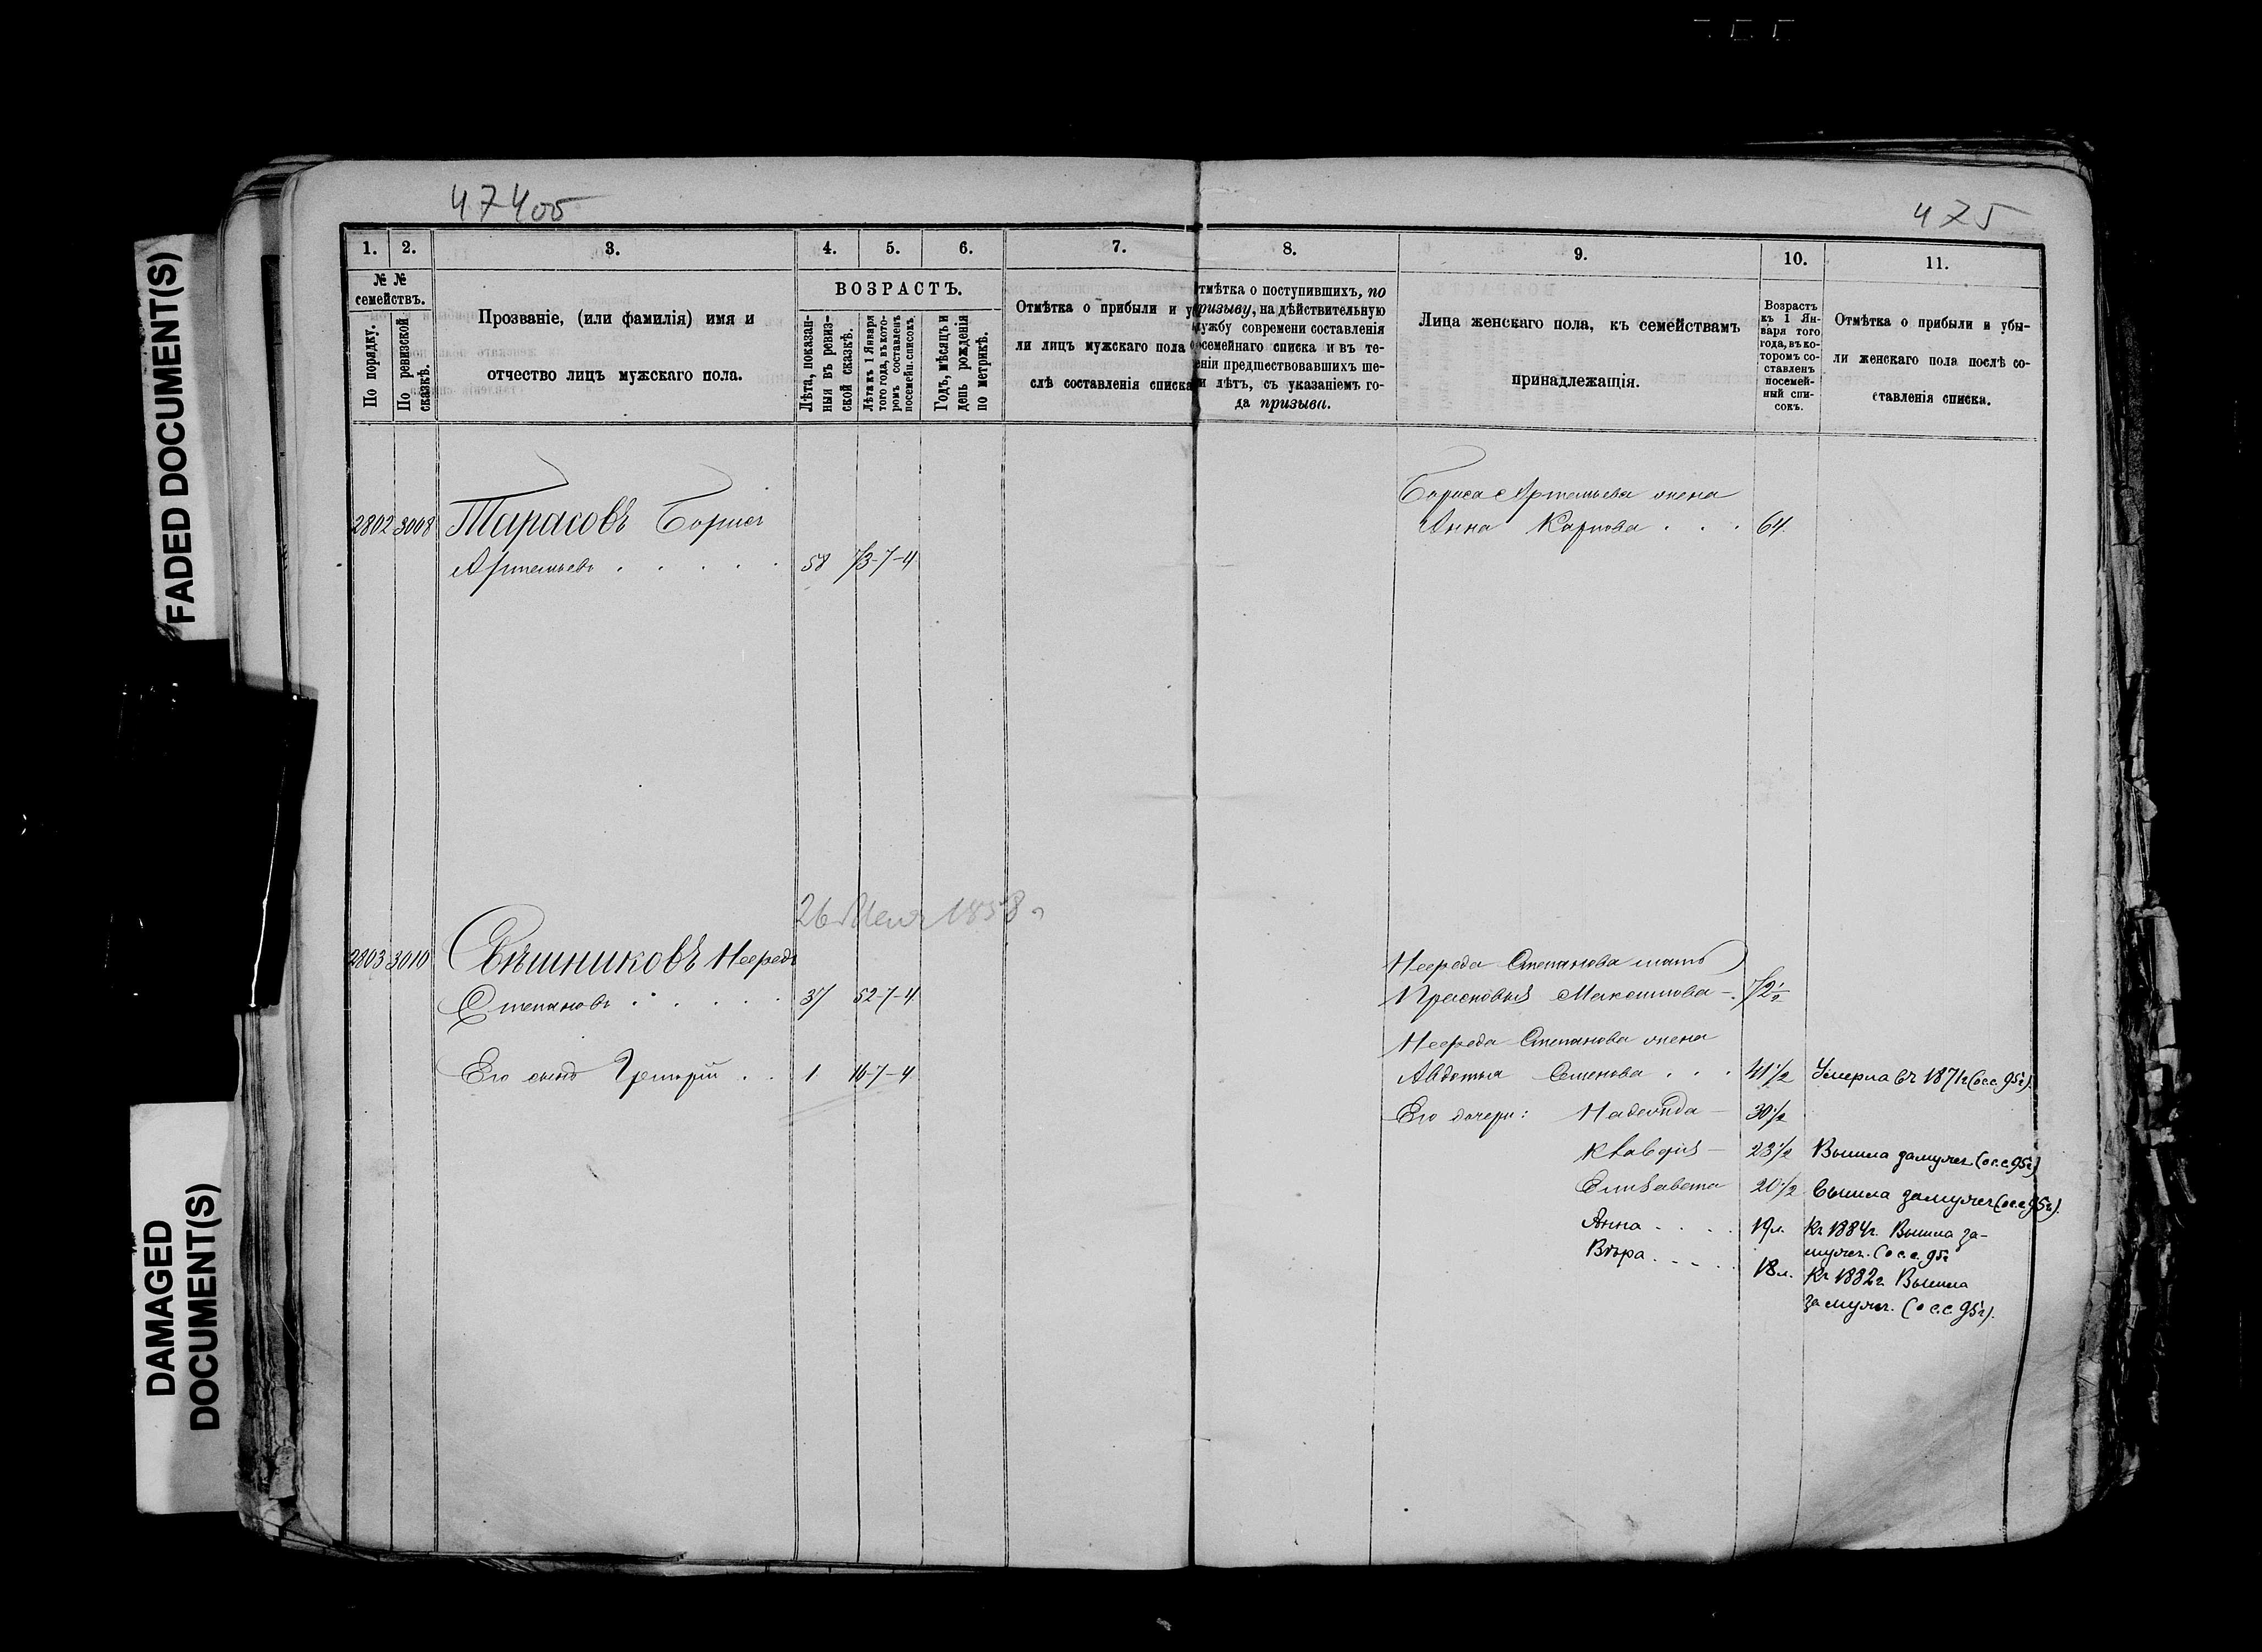 FADED DOCUMENT(S)
DAMAGED
DOCUMENT(S)
474об
475
1.
2.
3.
4.
5.
6.
7.
8.
9.
10.
11.
№ №
семействъ.
По порядку.
По ревизской
сказкѣ.
Прозваніе, (или фамилія) имя и
отчество лицъ мужскаго пола.
ВОЗРАСТЪ.
Лѣта, показан-
ныя въ ревиз-
ской сказкѣ.
Лѣта къ 1 Января
того года, въ кото-
ромъ составленъ
посемейн. списокъ.
Годъ, мѣсяцъ и
день рожденія
по метрикѣ.
Отмѣтка о прибыли и у
ли лицъ мужскаго пола
слѣ составленія списка
тмѣтка о поступившихъ, по
ризыву, на дѣйствительную
лужбу современи составленія
осемейнаго списка и въ те-
еніи предшествовавшихъ ше-
и лѣтъ, съ указаніемъ го-
да призыва.
Лица женскаго пола, къ семействамъ
принадлежащія.
Возрастъ
къ 1 Ян-
варя того
года, въ ко-
торомъ со-
ставленъ
посемей-
ный спи-
сокъ.
Отмѣтка о прибыли и убы-
ли женскаго пола послѣ со-
ставленія списка.
2802 3008 Тарасовъ Борисъ
Артемьевъ . . . . . 58 73-7-4
Бориса Артемьева жена
Анна Карпова . . . 64.
26 1858 г
2803 3010 Свѣшниковъ
Степановъ . . . . . 37 52-7-4
Его сынъ Григорій . . 1 16-7-4
Степанова мать
Прасковья Максимова - 72½
Степанова жена
Авдотья Семенова . . . 41½ Умерла въ 1871г (о с.с. 95г).
Его дочери: Надежда - 30½
Клавдія - 23½ Вышла замужъ (о с.с. 95г)
Елизавета 20½ Вышла замужъ (о с.с. 95г).
Анна . . . . 19л. Къ 1884г. Вышла за-
мужъ. (о с.с. 95г
Вѣра . . . . . 18л. Къ 1882г. Вышла
замужъ. (о с.с. 95г).